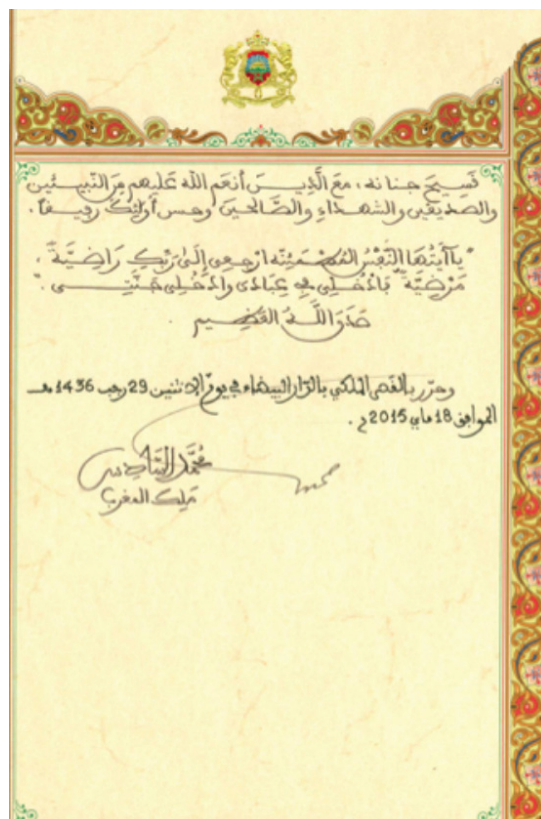 فسيح جنانه، مع الذيـن أنعم الله عليهم من النبيـئين
والصديقين والشهداء والصالحين وحسن أولئك رفيقاً.
"يا أيتها النفس المطمئنة ارجعي إلى ربك راضية،
مرضية فادخلي في عبادي وادخلي جنتـي".
صدق اللـه العظيم.
وحرّر بالقصر الملكي بالدار البيضاء في يوم الإثنين 29 رجب 1436 هـ
الموافق 18 ماي 2015م.
محمد السادس
ملك المغرب